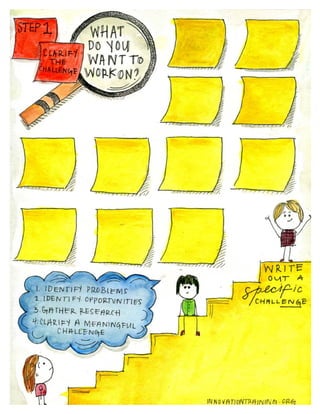 STEP 1
CLARIFY
THE
CHALLENGE
WHAT
DO YOU
WANT TO
WORK ON?
1. IDENTIFY PROBLEMS
2. IDENTIFY OPPORTUNITIES
3. GATHER RESEARCH
4. CLARIFY A MEANINGFUL
CHALLENGE
WRITE
OUT A
specific
CHALLENGE
INNOVATIONTRAINING.ORG